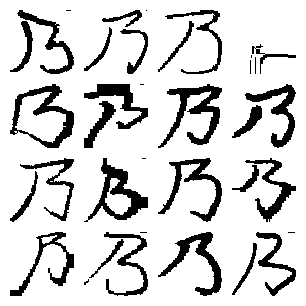 乃乃乃
乃乃乃乃
乃乃乃乃
乃乃乃乃